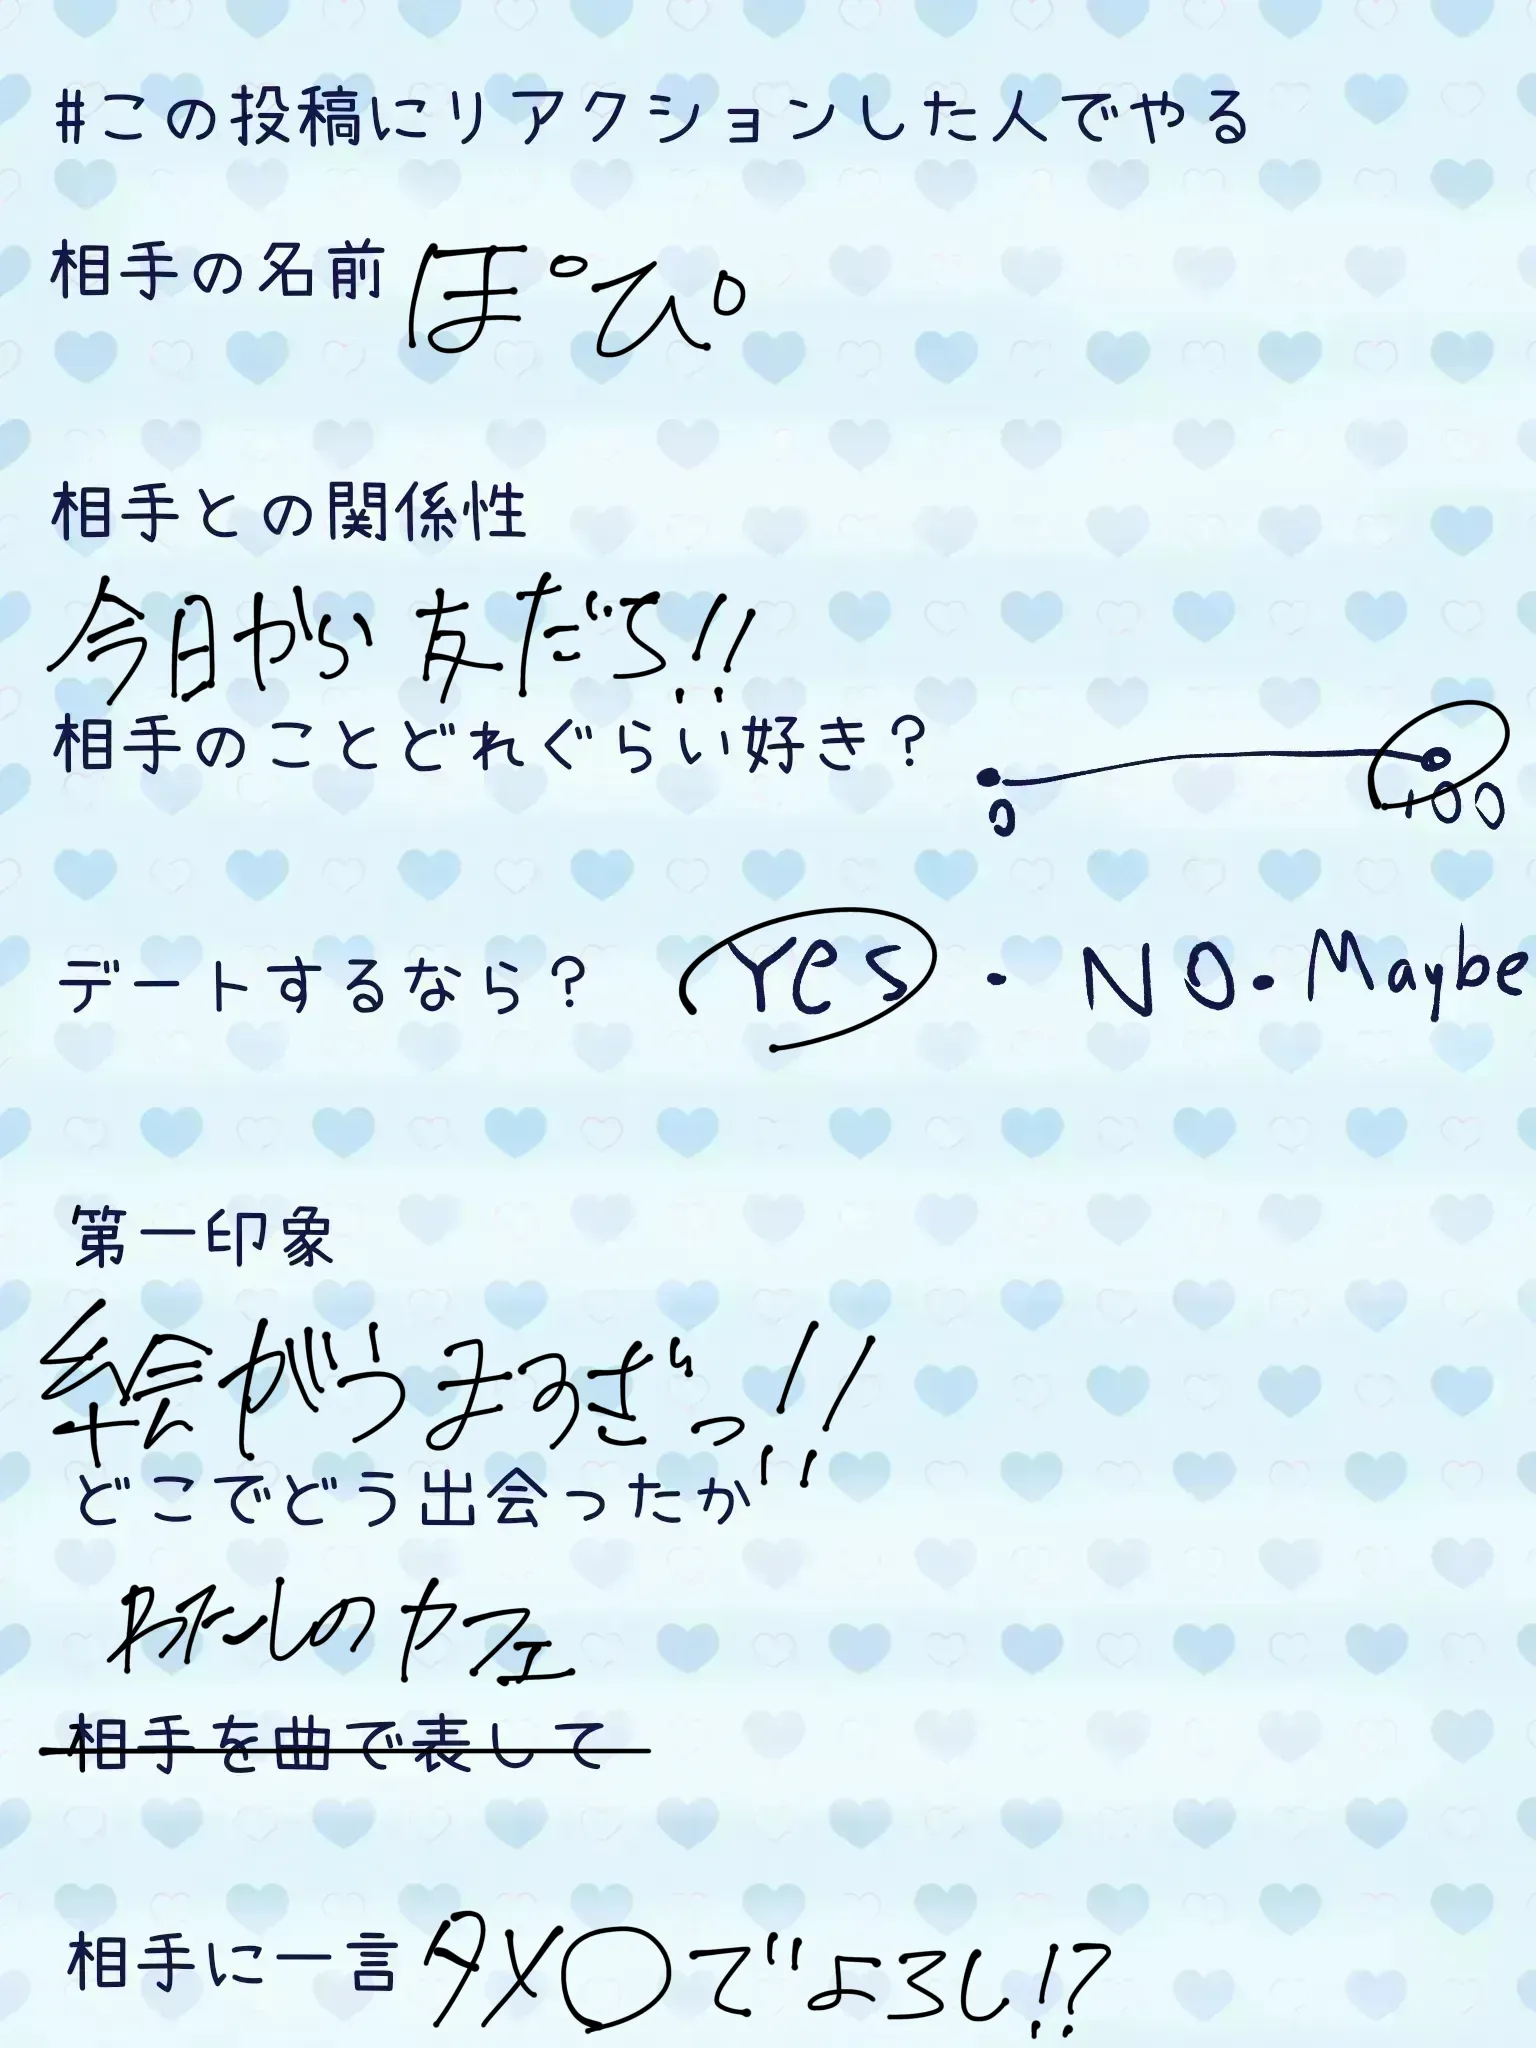 #この投稿にリアクションした人でやる
相手の名前 ぽぴ。
相手との関係性
今日から友だち!!
相手のことどれぐらい好き？
0 100
デートするなら？ Yes・NO・Maybe
第一印象
絵がうますぎっ!!
どこでどう出会ったか
わたしのカフェ
相手を曲で表して
相手に一言 タメ〇でよろし!?